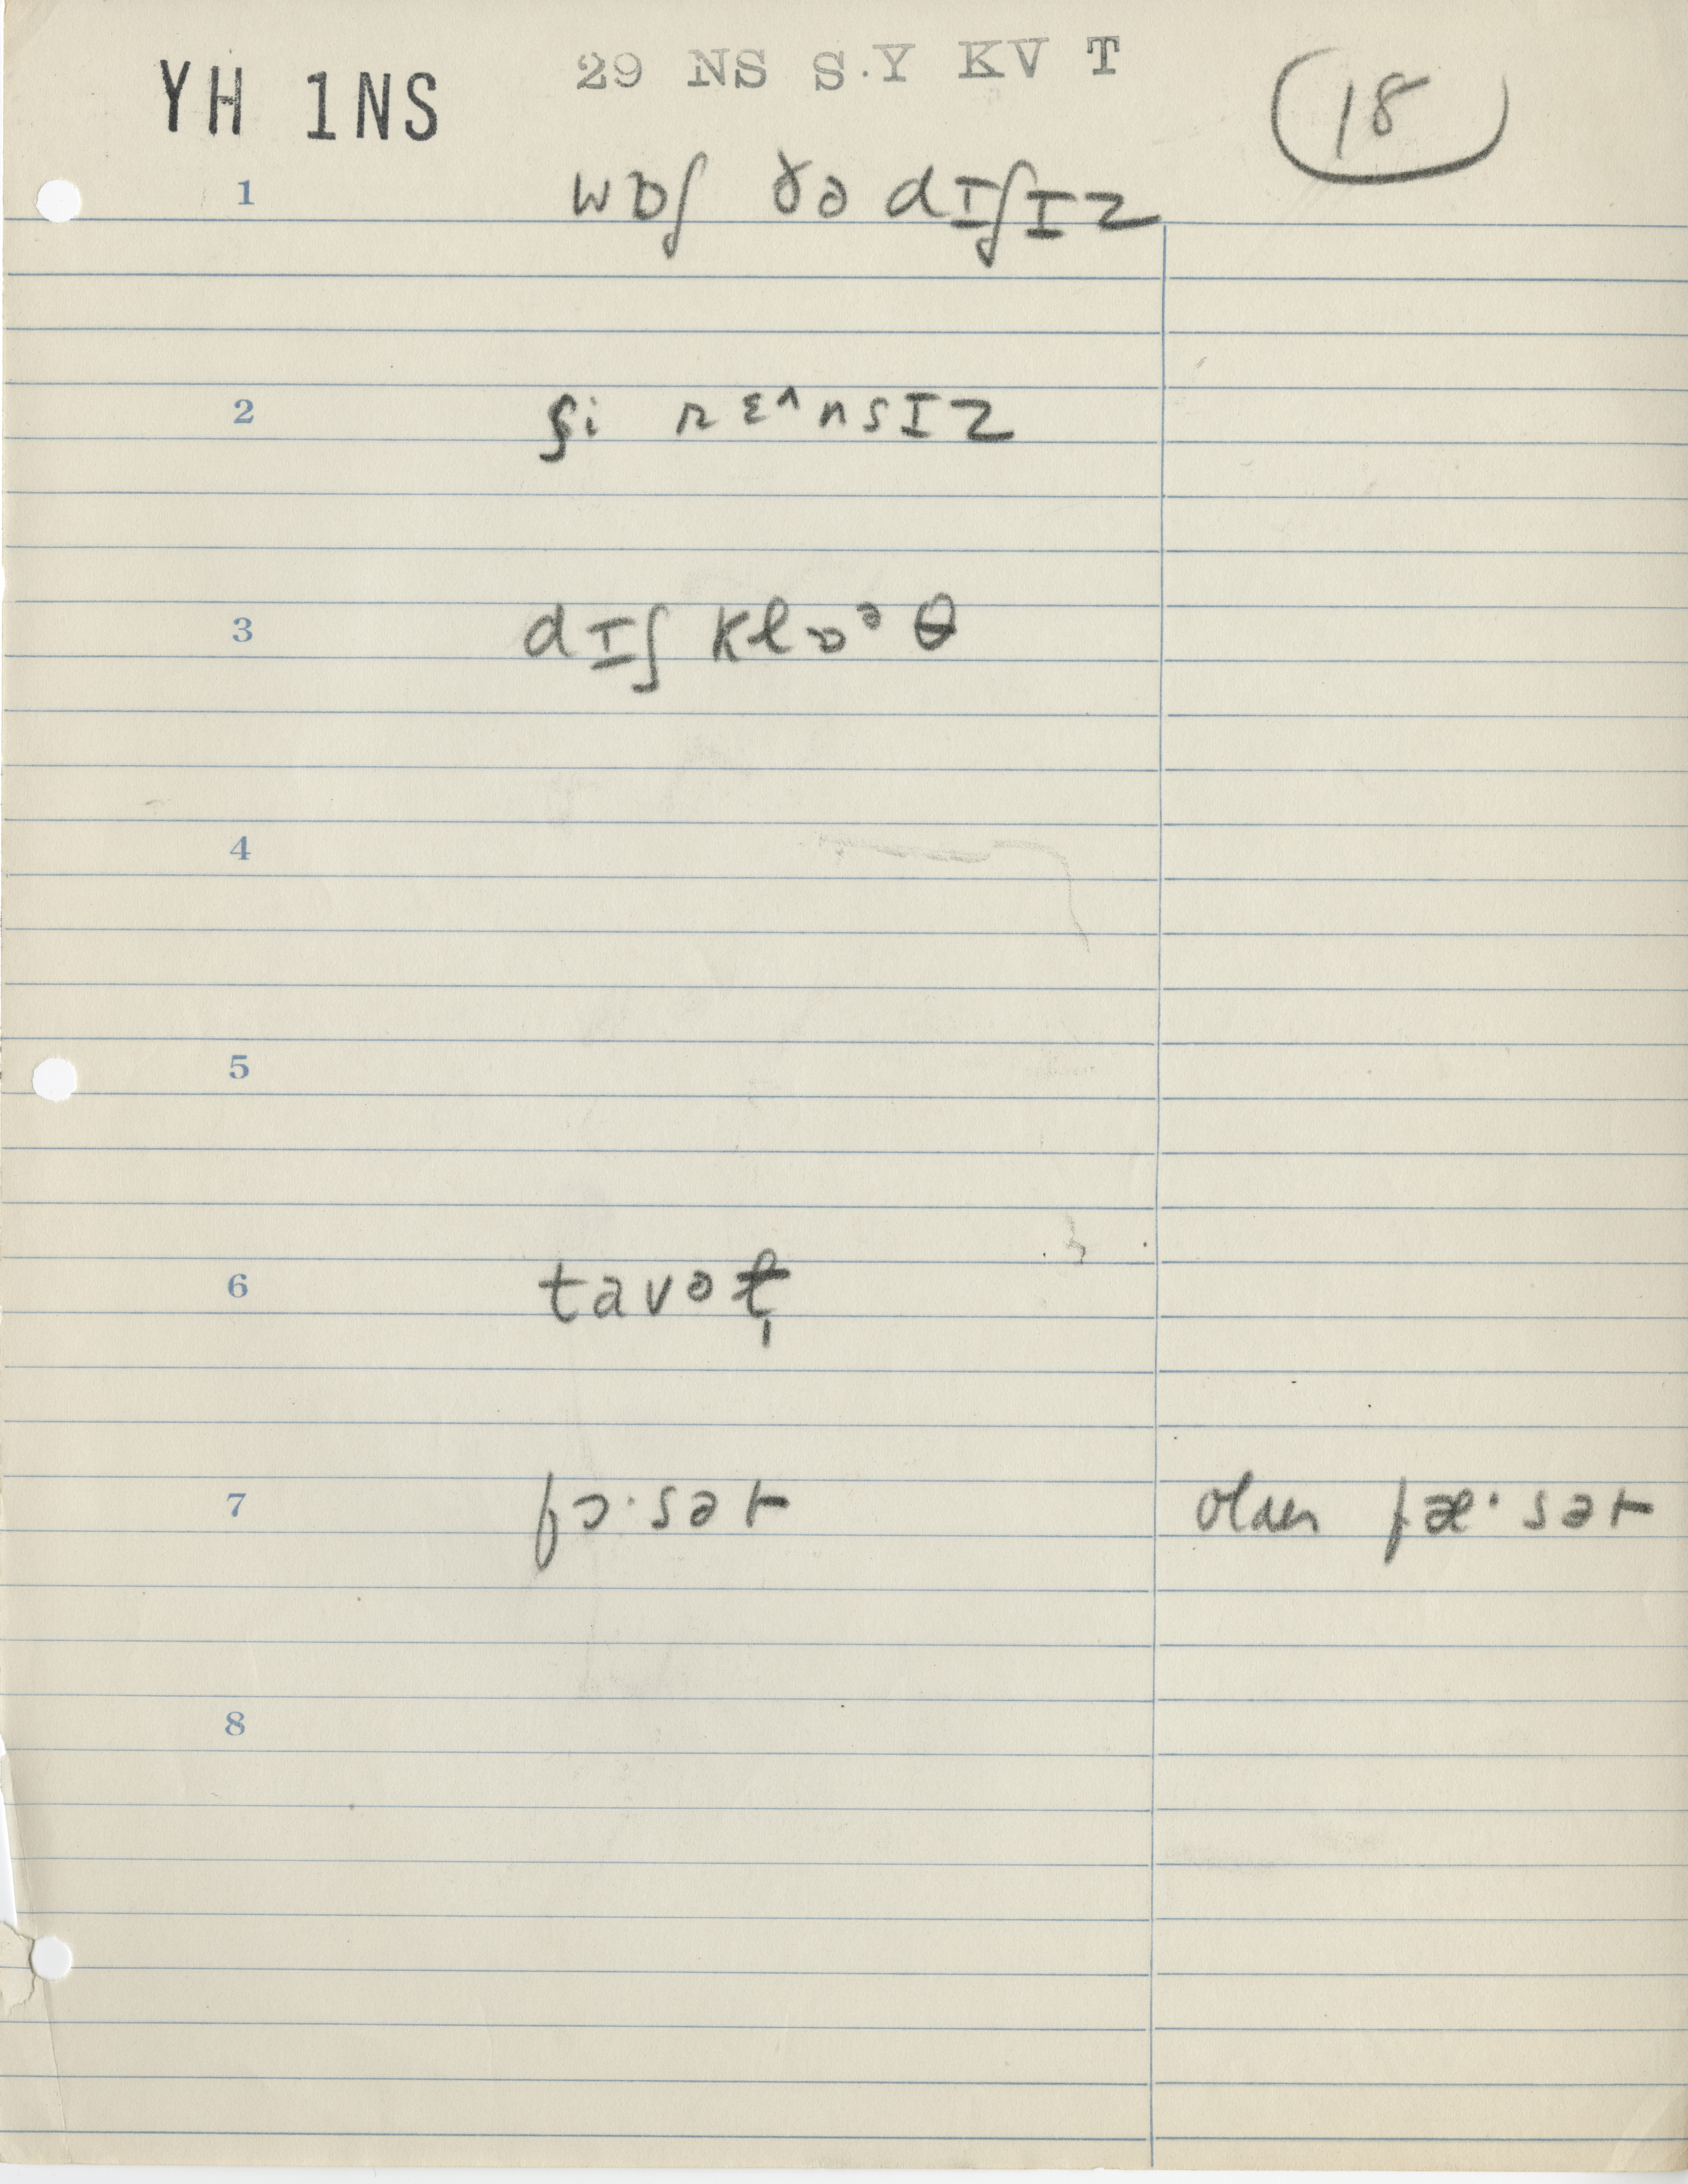 YH 1NS 29 NS S.Y KV T 18
1 wɒʃ ðə dɪʃɪz
2 ʃi rɛ^nsɪz
3 dɪʃ klɒᵊθ
4
5
6 tavəɫ̩
7 fɔ·sət older fæ·sət
8